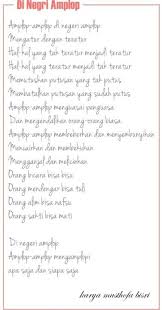 Di Negri Amplop
Amplop-amplop di negeri amplop
Mengatur dengan teratur
Hal-hal yang tak teratur menjadi teratur
Hal-hal yang teratur menjadi tak teratur
Memutuskan putusan yang tak putus
Membatalkan putusan yang sudah putus
Amplop-amplop menguasai penguasa
Dan mengendalikan orang-orang biasa
Amplop-amplop membeberkan dan menyembunyikan
Mencairkan dan membekukan
Mengganjal dan melicinkan
Orang bicara bisa bisu
Orang mendengar bisa tuli
Orang alim bisa nafsu
Orang sakti bisa mati
Di negeri amplop
Amplop-amplop mengamplopi
apa saja dan siapa saja
karya musthofa bisri